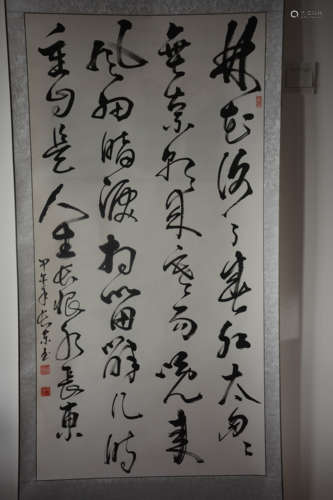 林花谢了春红太匆匆
無奈朝来寒雨晚来
风胭脂淚相留醉几时
重自是人生长恨水長東
甲午年